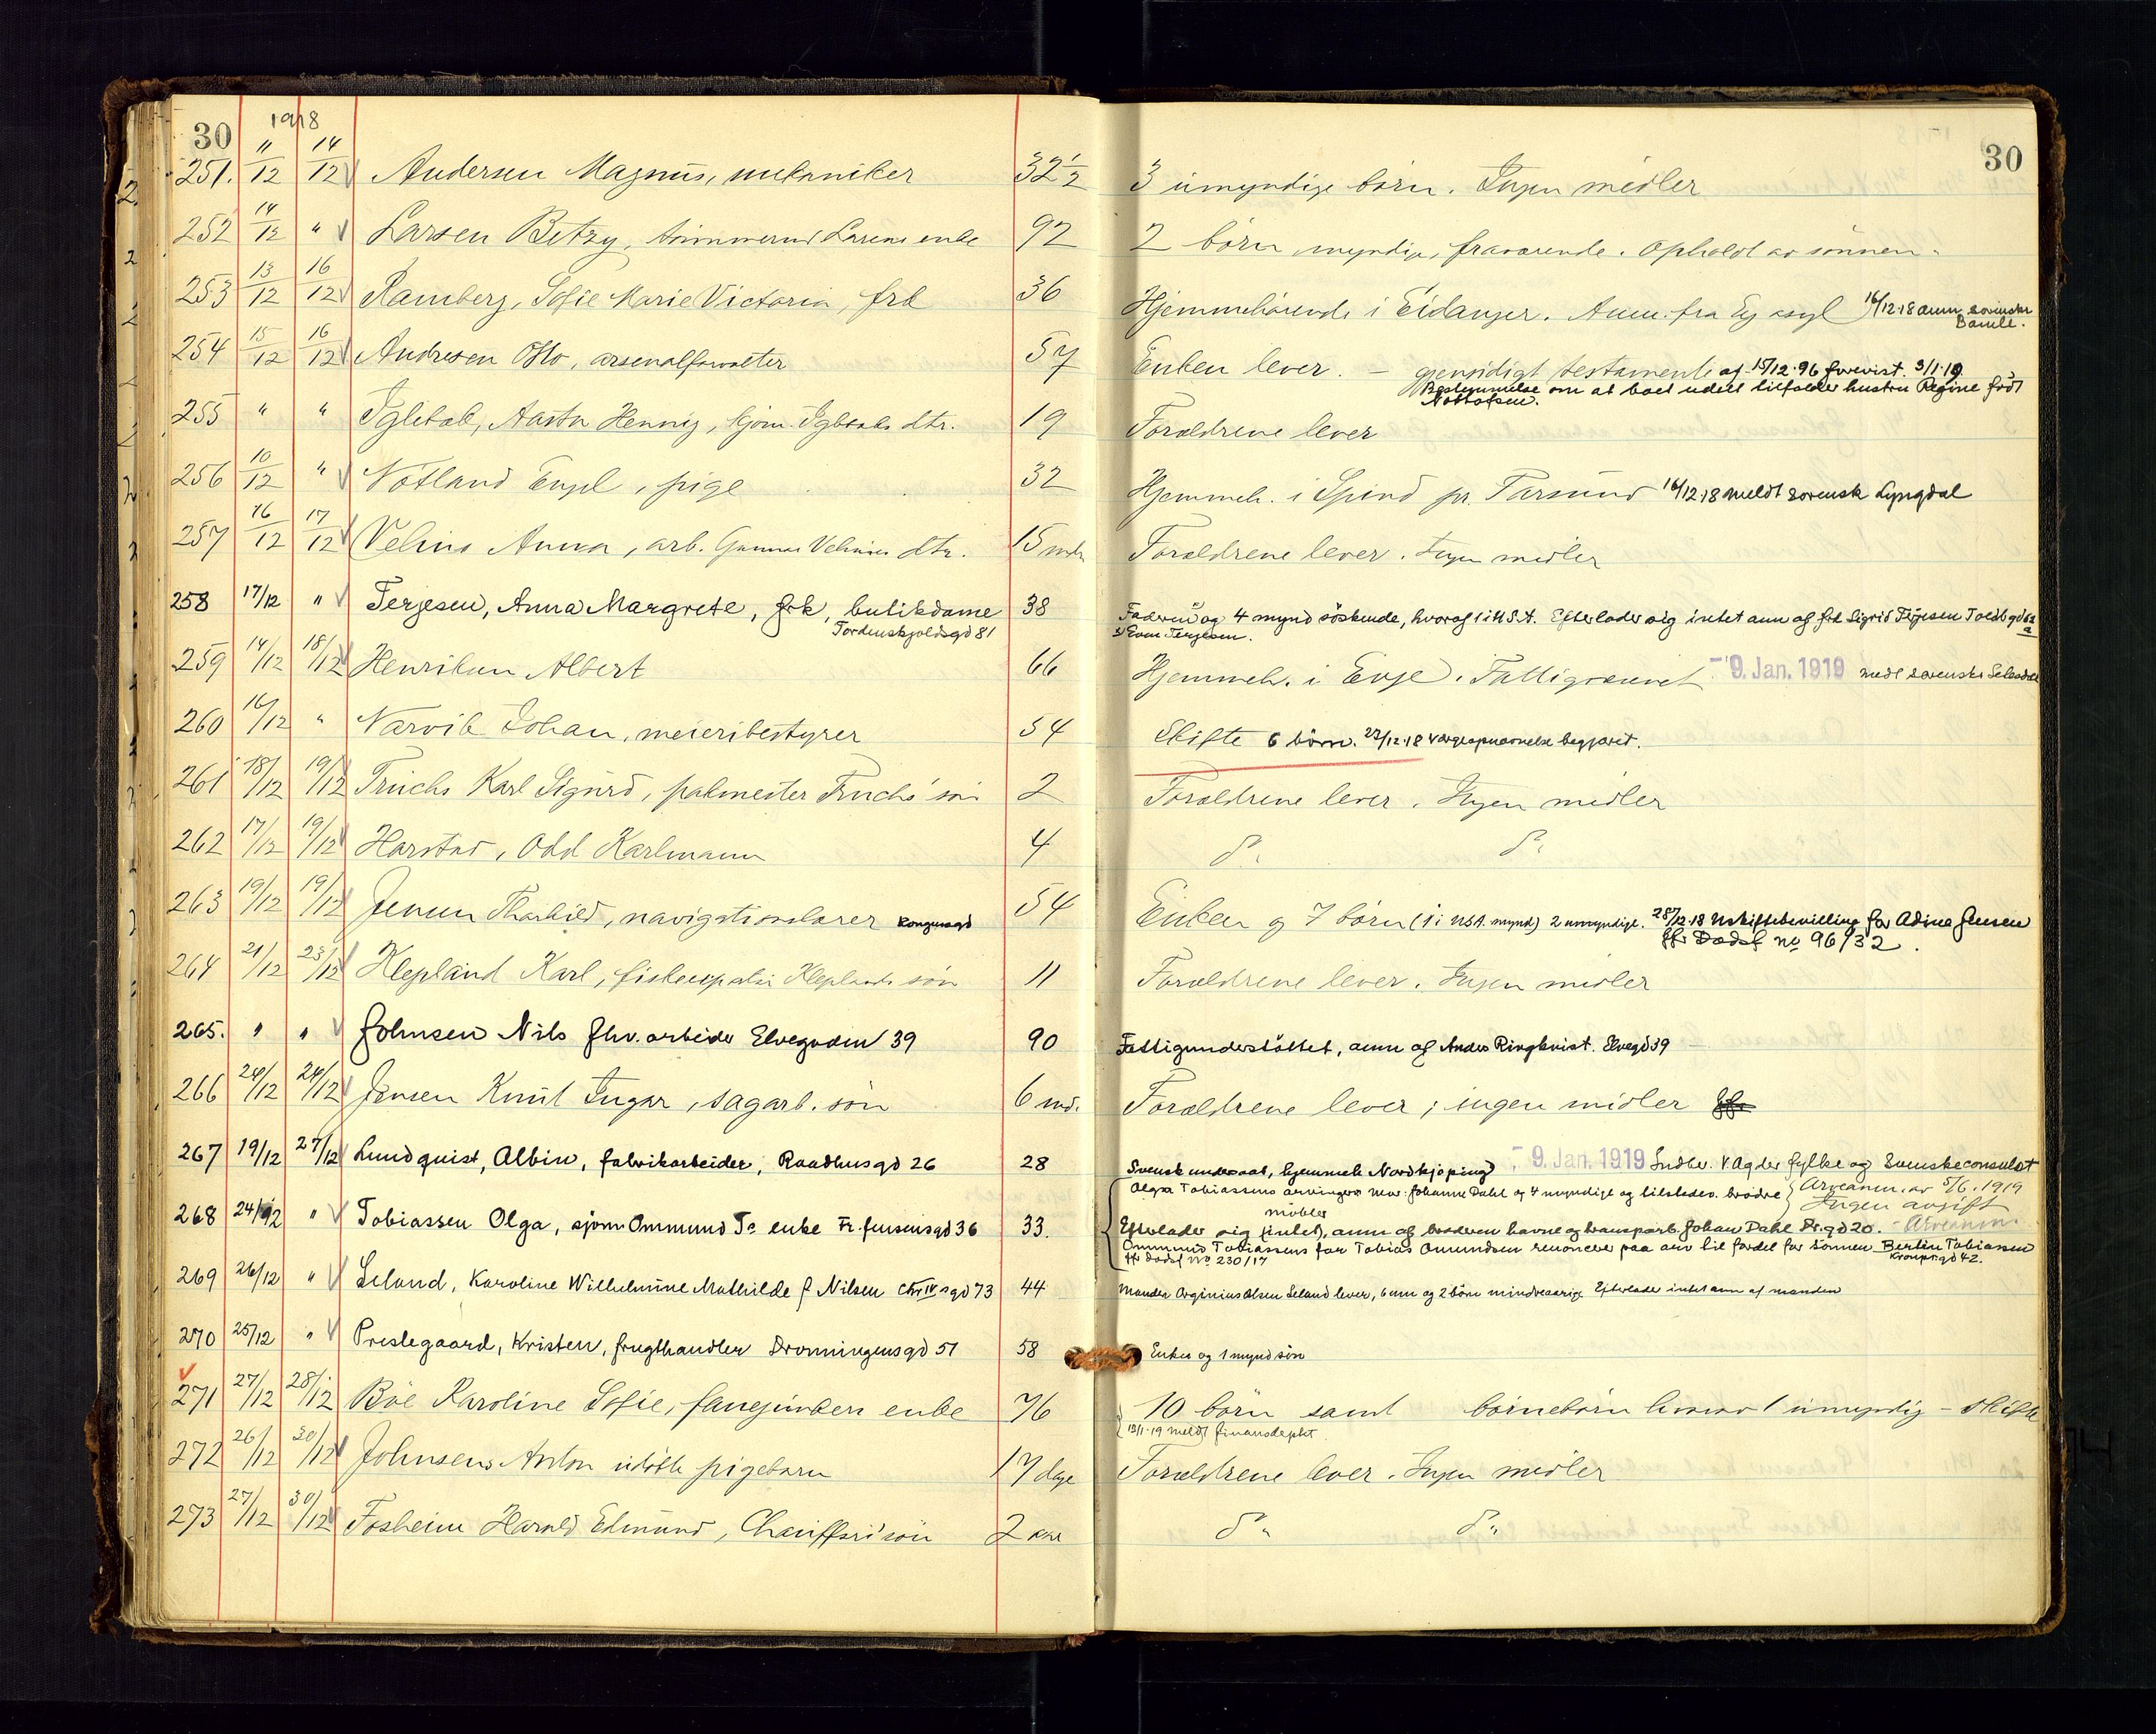 1918
30 30
251. 11/12 14/12 Andersen Magnus, mekaniker 32½ 3 umyndige børn. Ingen midler
252 14/12 " Larsen Betzy, tømmermd Larsens enke 92 2 børn myndige, fraværende. Ophold av sønnen.
253 13/12 16/12 Ramberg, Sofie Marie Victoria, frk 36 Hjemmehørende i Eidanger. Anm. fra Eg asyl 16/12.18 anm sorenskr
Bamle.
254 15/12 16/12 Andresen Otto, arsenalforvalter 57 Enken lever. – gjensidigt testamente af 15/12.96 forevist. 3/1.19.
Bestemmelse om at boet udelt tilfalder hustru Regine født
255 " " Igletal, Aasta Henny, sjøm. dtr. 19 Forældrene lever
256 10/12 " Nøtland Engel, pige 32 Hjemmeh. i Spind pr. Farsund 16/12.18 meldt sorensk Lyngdal
257 16/12 17/12 Velius Anna, arb. Gunnar Velius dtr. 15 mdr Forældrene lever. Ingen midler
258 17/12 " Terjesen, Anna Margrete, frk, butikdame 38 Faderen og 4 mynd søskende, hvoraf 1 i U.S.A. Efterlader sig intet anm af frk Sigrid Terjesen Toldbgd 62
Tordenskjoldsgd 81 Terjesen.
259 14/12 18/12 Henriksen Albert 66 Hjemmeh. i Evje. Fattigvæsenet – 9. Jan. 1919 medl sorenskr
260 16/12 " Narvik Johan, meieribestyrer 54 Skifte 6 børn. 27/12.18 værgeopnævnelse begjæret.
261 18/12 19/12 Fruchs Karl Sigurd, pakmester Fruchs' søn 2 Forældrene lever. Ingen midler
262 17/12 19/12 Harstad, Odd Karlmann 4 Do. Do.
263 19/12 19/12 Jensen Thorbild, navigationslærer Kongensgd 54 Enken og 7 børn (1 i USA. mynd) 2 umyndige. 28/12.18 Uskiftebevilling for Adine Jensen
jfr. Dødsf no 96/32.
264 21/12 23/12 Klepland Karl, Kleplands søn 11 Forældrene lever. Ingen midler
265. " " Johnsen Nils fhv. arbeider Elvegaden 39 90 Fattigunderstøttet, anm af Anders Ringkvist. Elvegd 39
266 24/12 24/12 Jensen Knut Ingar, sagarb. søn 6 md. Forældrene lever; ingen midler
267 19/12 27/12 Lundquist, Albin, fabrikarbeider, Raadhusgd 26 28 Svensk undersaat, hjemmeh Nordkjøping – 9. Jan. 1919 Indber. V Agder fylke og Svenskeconsulat
Olga Tobiassens arvinger Mor: Johanne Dahl og 4 myndige og tilstedev. brødre Arveanm. av 5/6. 1919
Ingen avgift
møbler
268 24/12 " Tobiassen Olga, sjøm. Ommund Ts enke Fr. Jensensgd 36 33. Efterlader sig (intet), anm af broderen havne og transparb. Johan Dahl Dr.gd 20. – Arveanm.
Ommund Tobiassens far Tobias Omundsen renoncerer paa arv til fordel for sønnen Bertin Tobiassen
jfr Dødsf No 230/17 Kronprgd 42.
269 26/12 " Seland, Karoline Wilhelmine Mathilde f Nilsen Chr IVsgd 73 44 Manden Orginius Olsen Seland lever, 6 um og 2 børn mindreaarige Efterlader intet anm af manden
270 25/12 " Preslegaard, Kristen, frugthandler Dronningensgd 51 58 Enke og 1 mynd søn
271 27/12 28/12 Bøe Karoline Sofie, fanejunkers enke 76 10 børn samt børnebørn hvorav 1 umyndig – Skifte
13/1.19 meldt finansdeptet
272 26/12 30/12 Johnsens Anton udøbte pigebarn 17 dge Forældrene lever. Ingen midler
273 27/12 30/12 Fosheim Harald Edmund, Chaufførs søn 2 aar Do. Do.